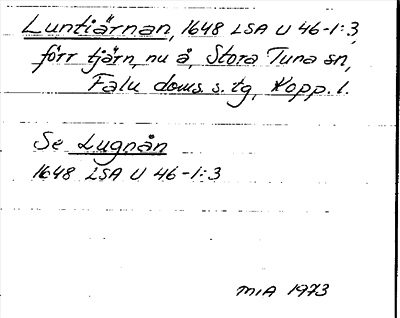 Luntiärnan, 1648 LSA U 46-1:3,
förr tjärn, nu å, Stora Tuna sn,
Falu doms. s. tg, Kopp. l.
Se Lugnån
1648 LSA U 46-1:3
MIA 1973